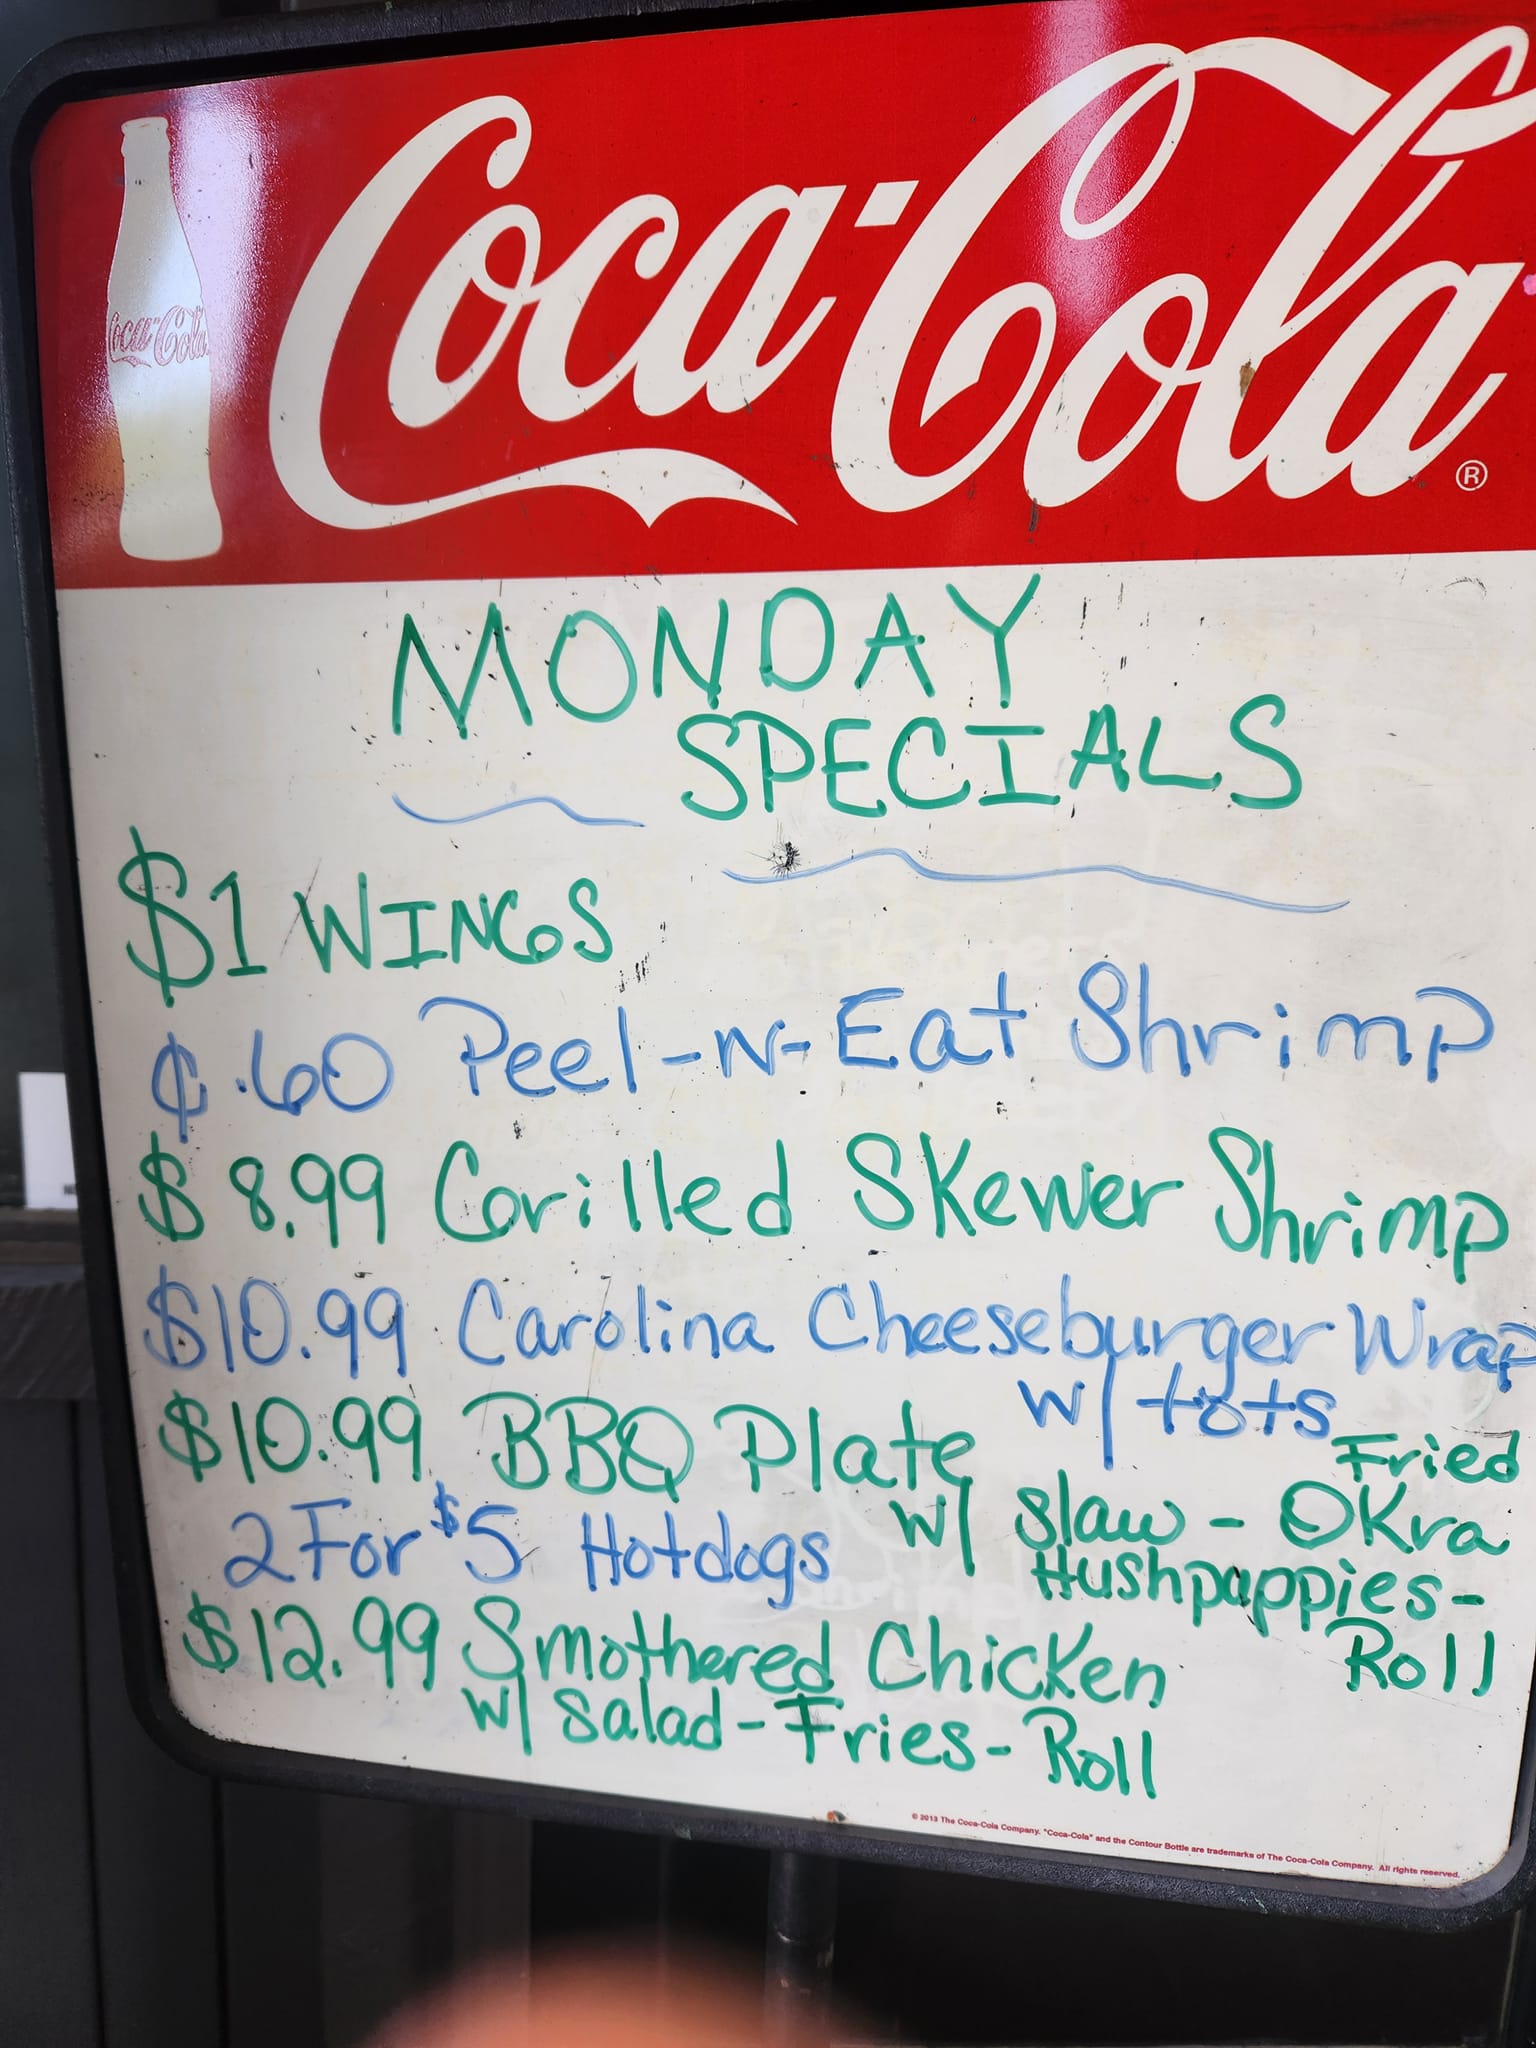 Coca-Cola
Coca-Cola®
MONDAY
SPECIALS
$1 WINGS
¢.60 Peel-N-Eat Shrimp
$8.99 Grilled Skewer Shrimp
$10.99 Carolina Cheeseburger Wrap
w/ tots
$10.99 BBQ Plate
w/ slaw - Fried Okra
Hushpuppies-
Roll
2 For $5 Hotdogs
$12.99 Smothered Chicken
w/ Salad - Fries - Roll
© 2013 The Coca-Cola Company. "Coca-Cola" and the Contour Bottle are trademarks of The Coca-Cola Company. All rights reserved.